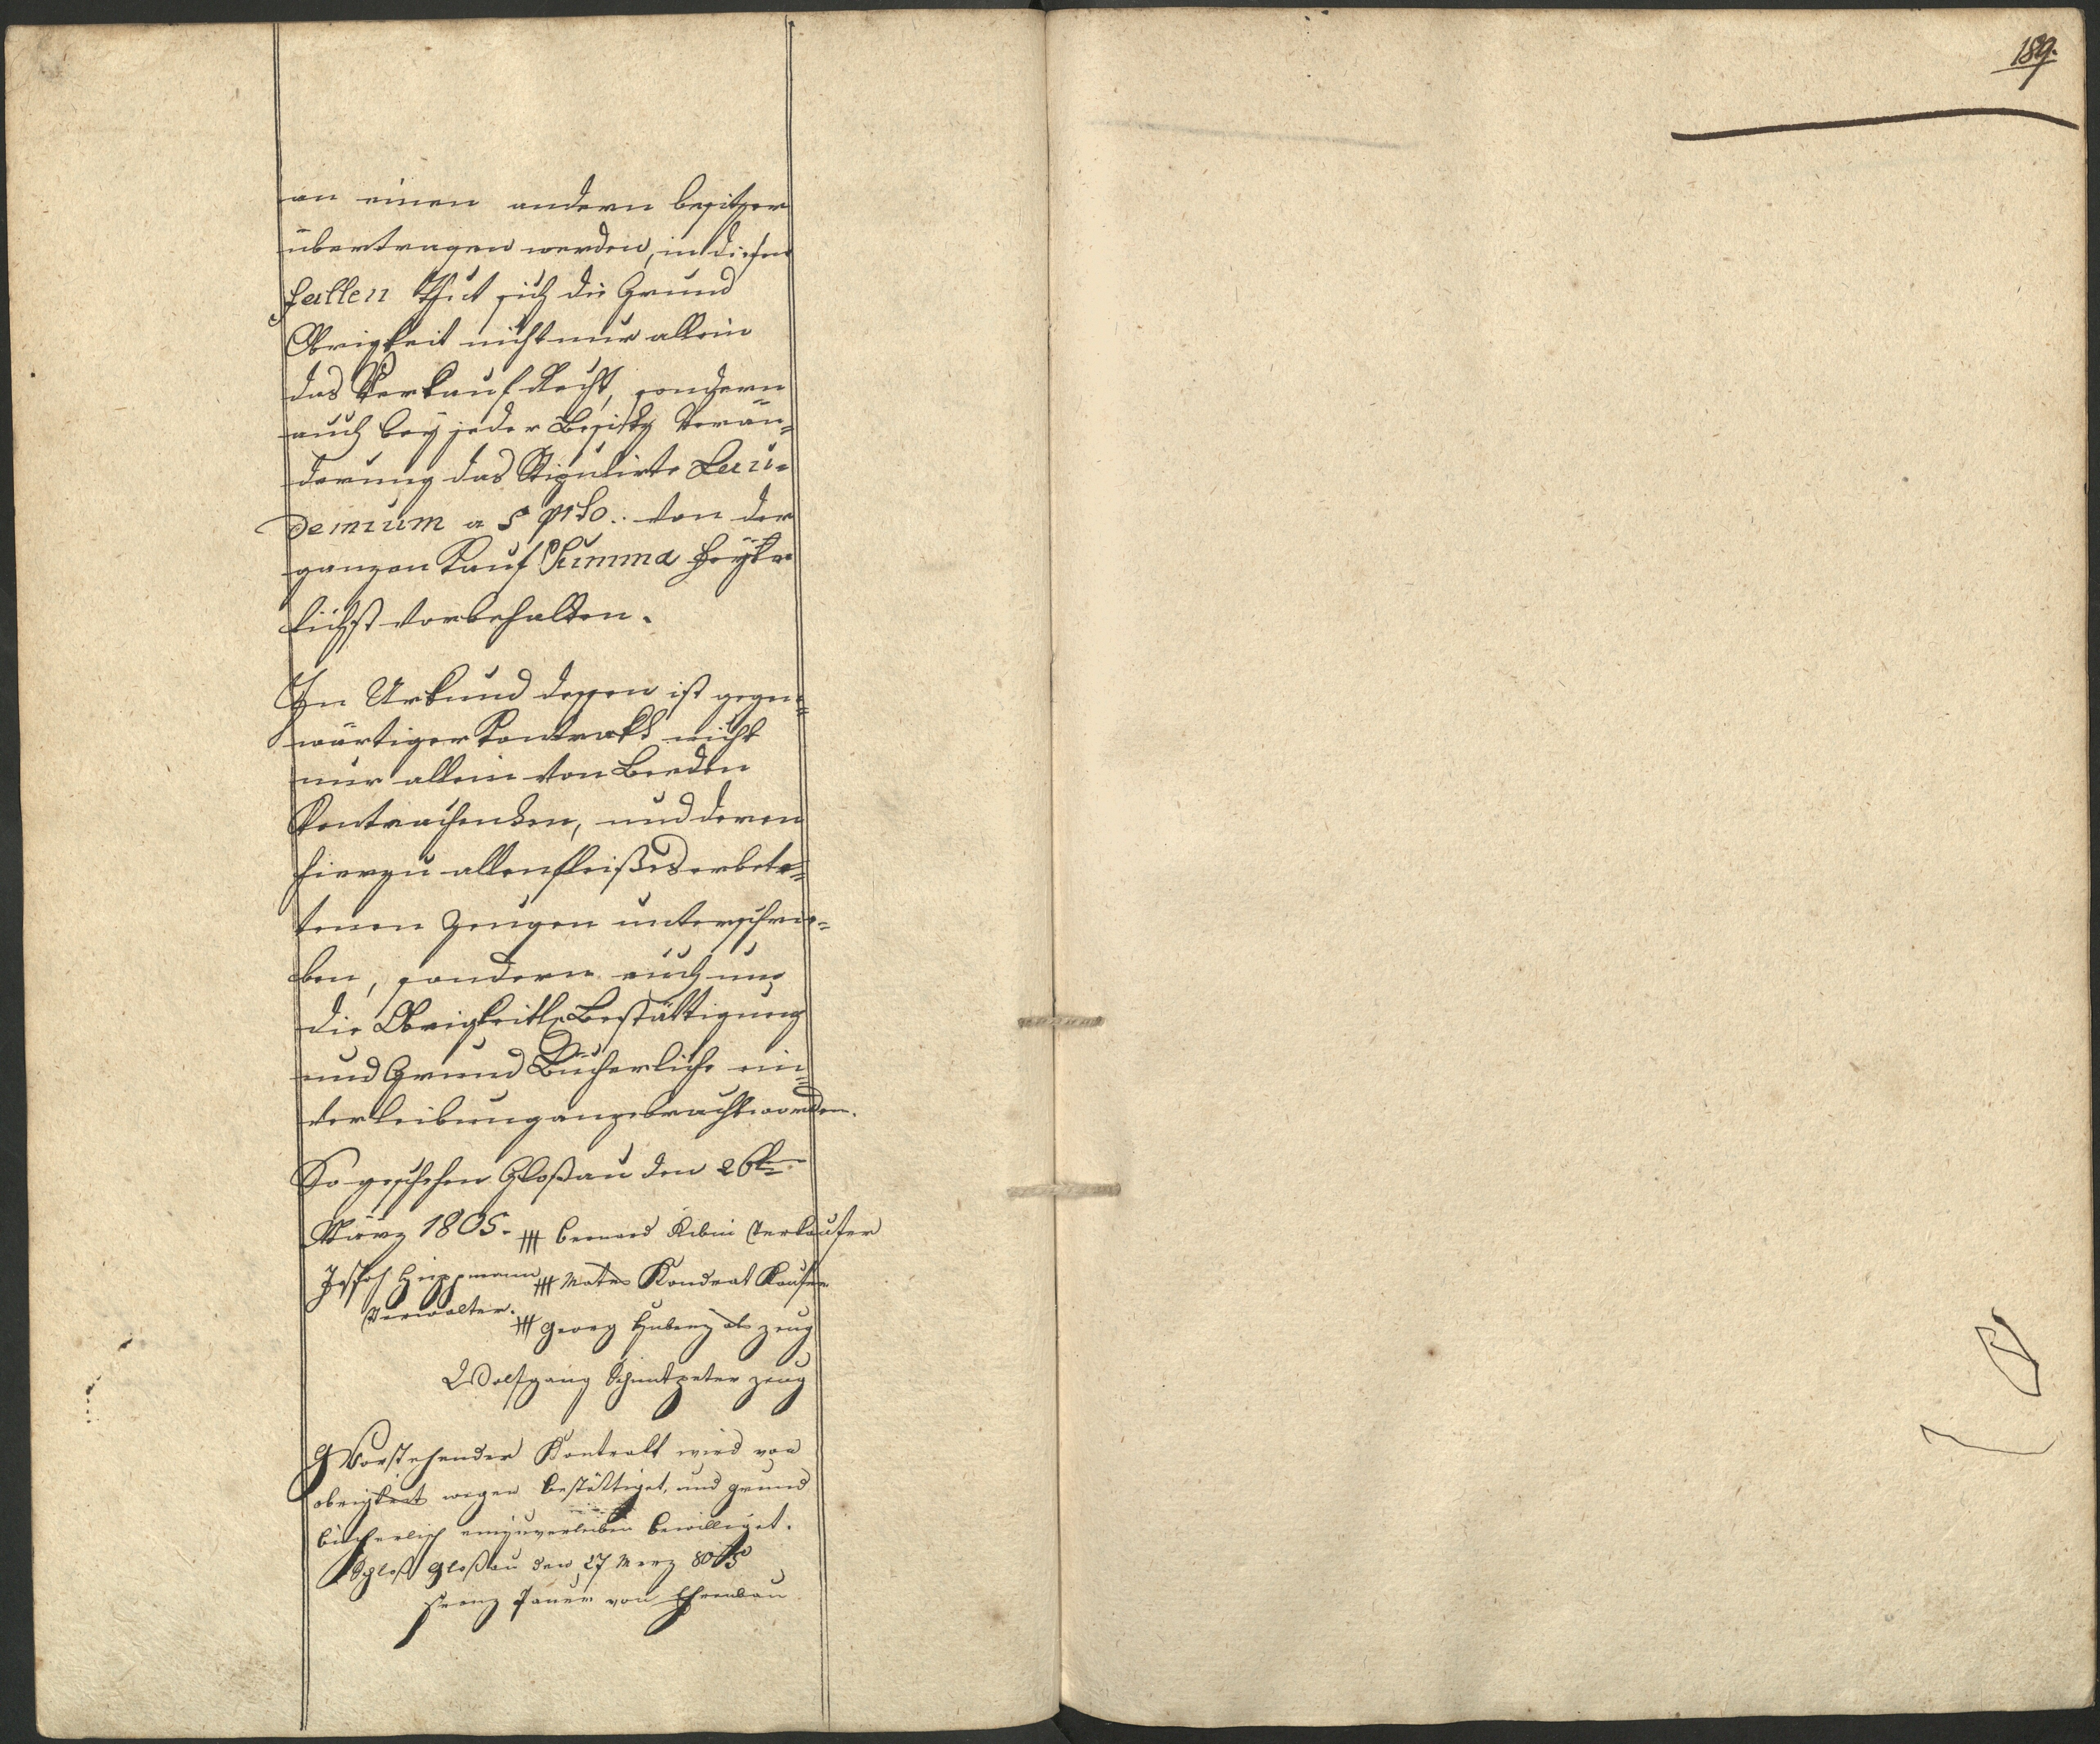 189.
an einen andern besitzer
übertragen werden, in diesen
fallen Thut sich die Grund
Obrigkeit nicht nur allein
das Verkauf Recht, sondern
auch bey jeder Besitz Verän=
derung das Stipulirte Lau=
demium a 5 pcto. von der
ganzen Kauf Summa
lichst vorbehalten.
In Urkund dessen ist gegen=
wärtiger Kontrakt nicht
nur allein von Beeden
Kontrahenten, und deren
hierzu allenfleißes erbete=
tenen Zeugen unterschrie=
ben, sondern auch um
die Obrigkeitl. Bestättigung
und Grund Bücherliche ein=
verleibung angebracht worden.
So geschehen Gloßau den 26ten
März 1805. +++ Bernard Verkaufer
Joseph +++ Mates Kondrat Kaufer
Verwalter. +++ Georg als zeug
Wolfgang zeug
Vorstehender Kontrakt wird von
obrigkeits wegen bestättiget, und grund
bücherlich einzuverleiben bewilliget.
Schloß Gloßau den 27 Merz 805
Franz von Ehrenbau